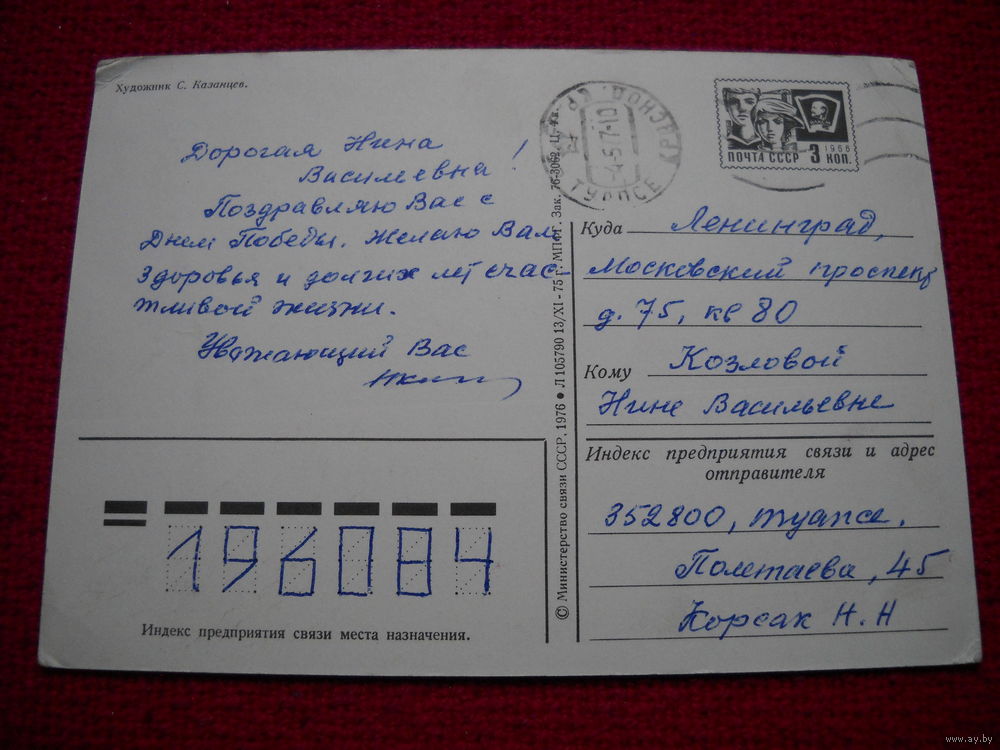 Художник С. Казанцев.
Дорогая Нина
Васильевна!
Поздравляю Вас с
Днем Победы. Желаю Вам
здоровья и долгих лет счас-
тливой жизни.
Уважающий Вас
ПОЧТА СССР 3 КОП.
1966
ТУАПСЕ
Куда Ленинград,
Московский проспект
д. 75, кв 80
Кому Козловой
Нине Васильевне
Индекс предприятия связи и адрес
отправителя
352800, Туапсе,
Полетаева, 45
Корсак Н. Н
© Министерство связи СССР, 1976 • Л 105790 13/XI - 75 г. МПФГ. Зак. 76-3062. Ц. 4 к.
196084
Индекс предприятия связи места назначения.
www.ay.by